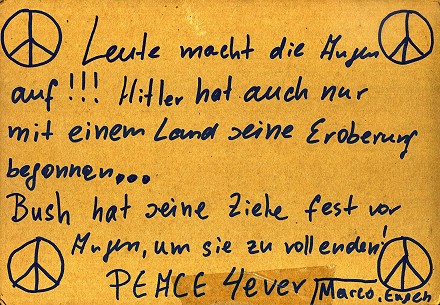 Leute macht die Augen
auf!!! Hitler hat auch nur
mit einem Land seine Eroberung
begonnen...
Bush hat seine Ziehle fest vor
Augen, um sie zu vollenden!
PEACE 4ever
Marco,